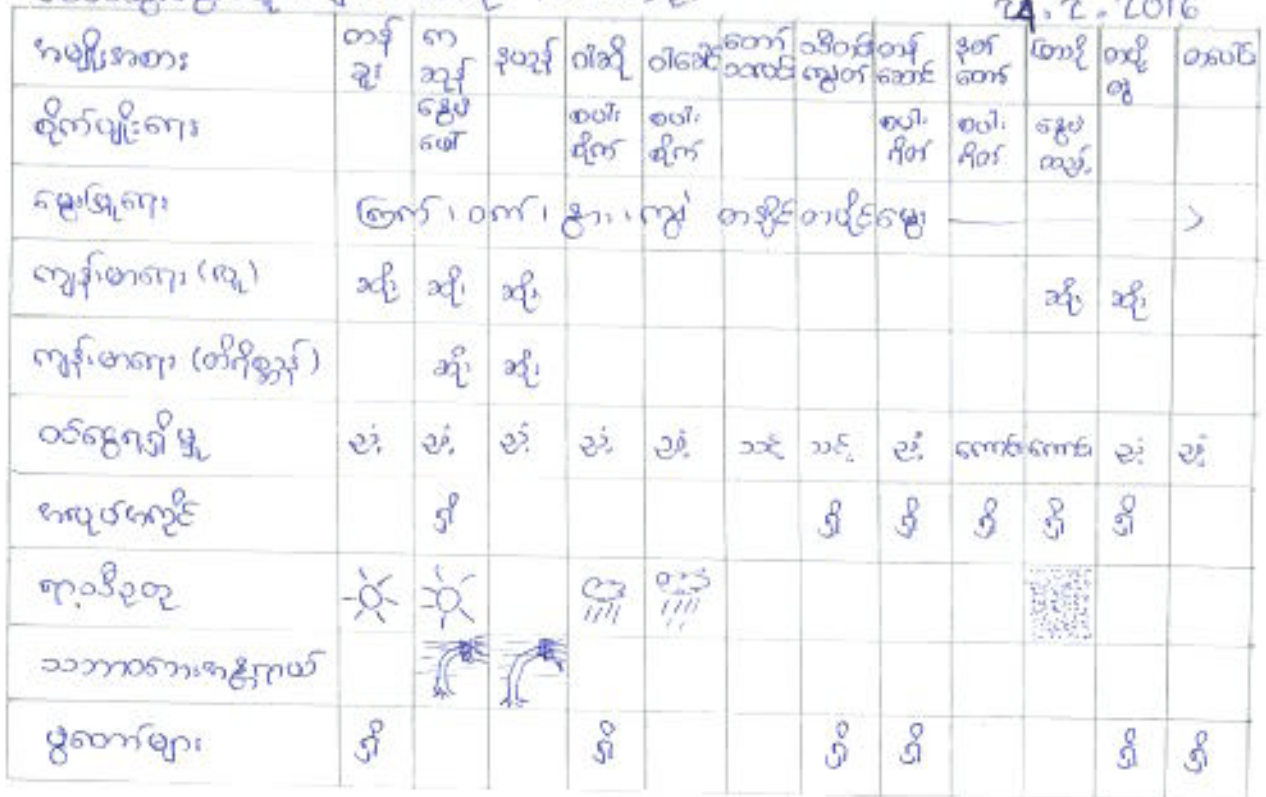 24.2.2016
အမျိုးအစား တန်ခူး ကဆုန် နယုန် ဝါဆို ဝါခေါင် တော်သလင်း သီတင်းကျွတ် တန်ဆောင် နတ်တော် ပြာသို တပို့တွဲ တပေါင်း
စိုက်ပျိုးရေး နွေစပါးပေါ် စပါးစိုက် စပါးစိုက် စပါးရိတ် စပါးရိတ်
မွေးမြူရေး ကြက်၊ ဝက်၊ နွား၊ ကျွဲ တနိုင်တပိုင်မွေး
ကျန်းမာရေး (လူ) ဆိုး ဆိုး ဆိုး ဆိုး ဆိုး
ကျန်းမာရေး (တိရိစ္ဆာန်) ဆိုး ဆိုး
ဝင်ငွေရရှိမှု ညံ့ ညံ့ ညံ့ ညံ့ ညံ့ သင့် သင့် ညံ့ ကောင်း ကောင်း ညံ့ ညံ့
အလုပ်အကိုင် ရှိ ရှိ ရှိ ရှိ ရှိ ရှိ
ရာသီဥတု
သဘာဝဘေးအန္တရာယ်
ပွဲတော်များ ရှိ ရှိ ရှိ ရှိ ရှိ ရှိ